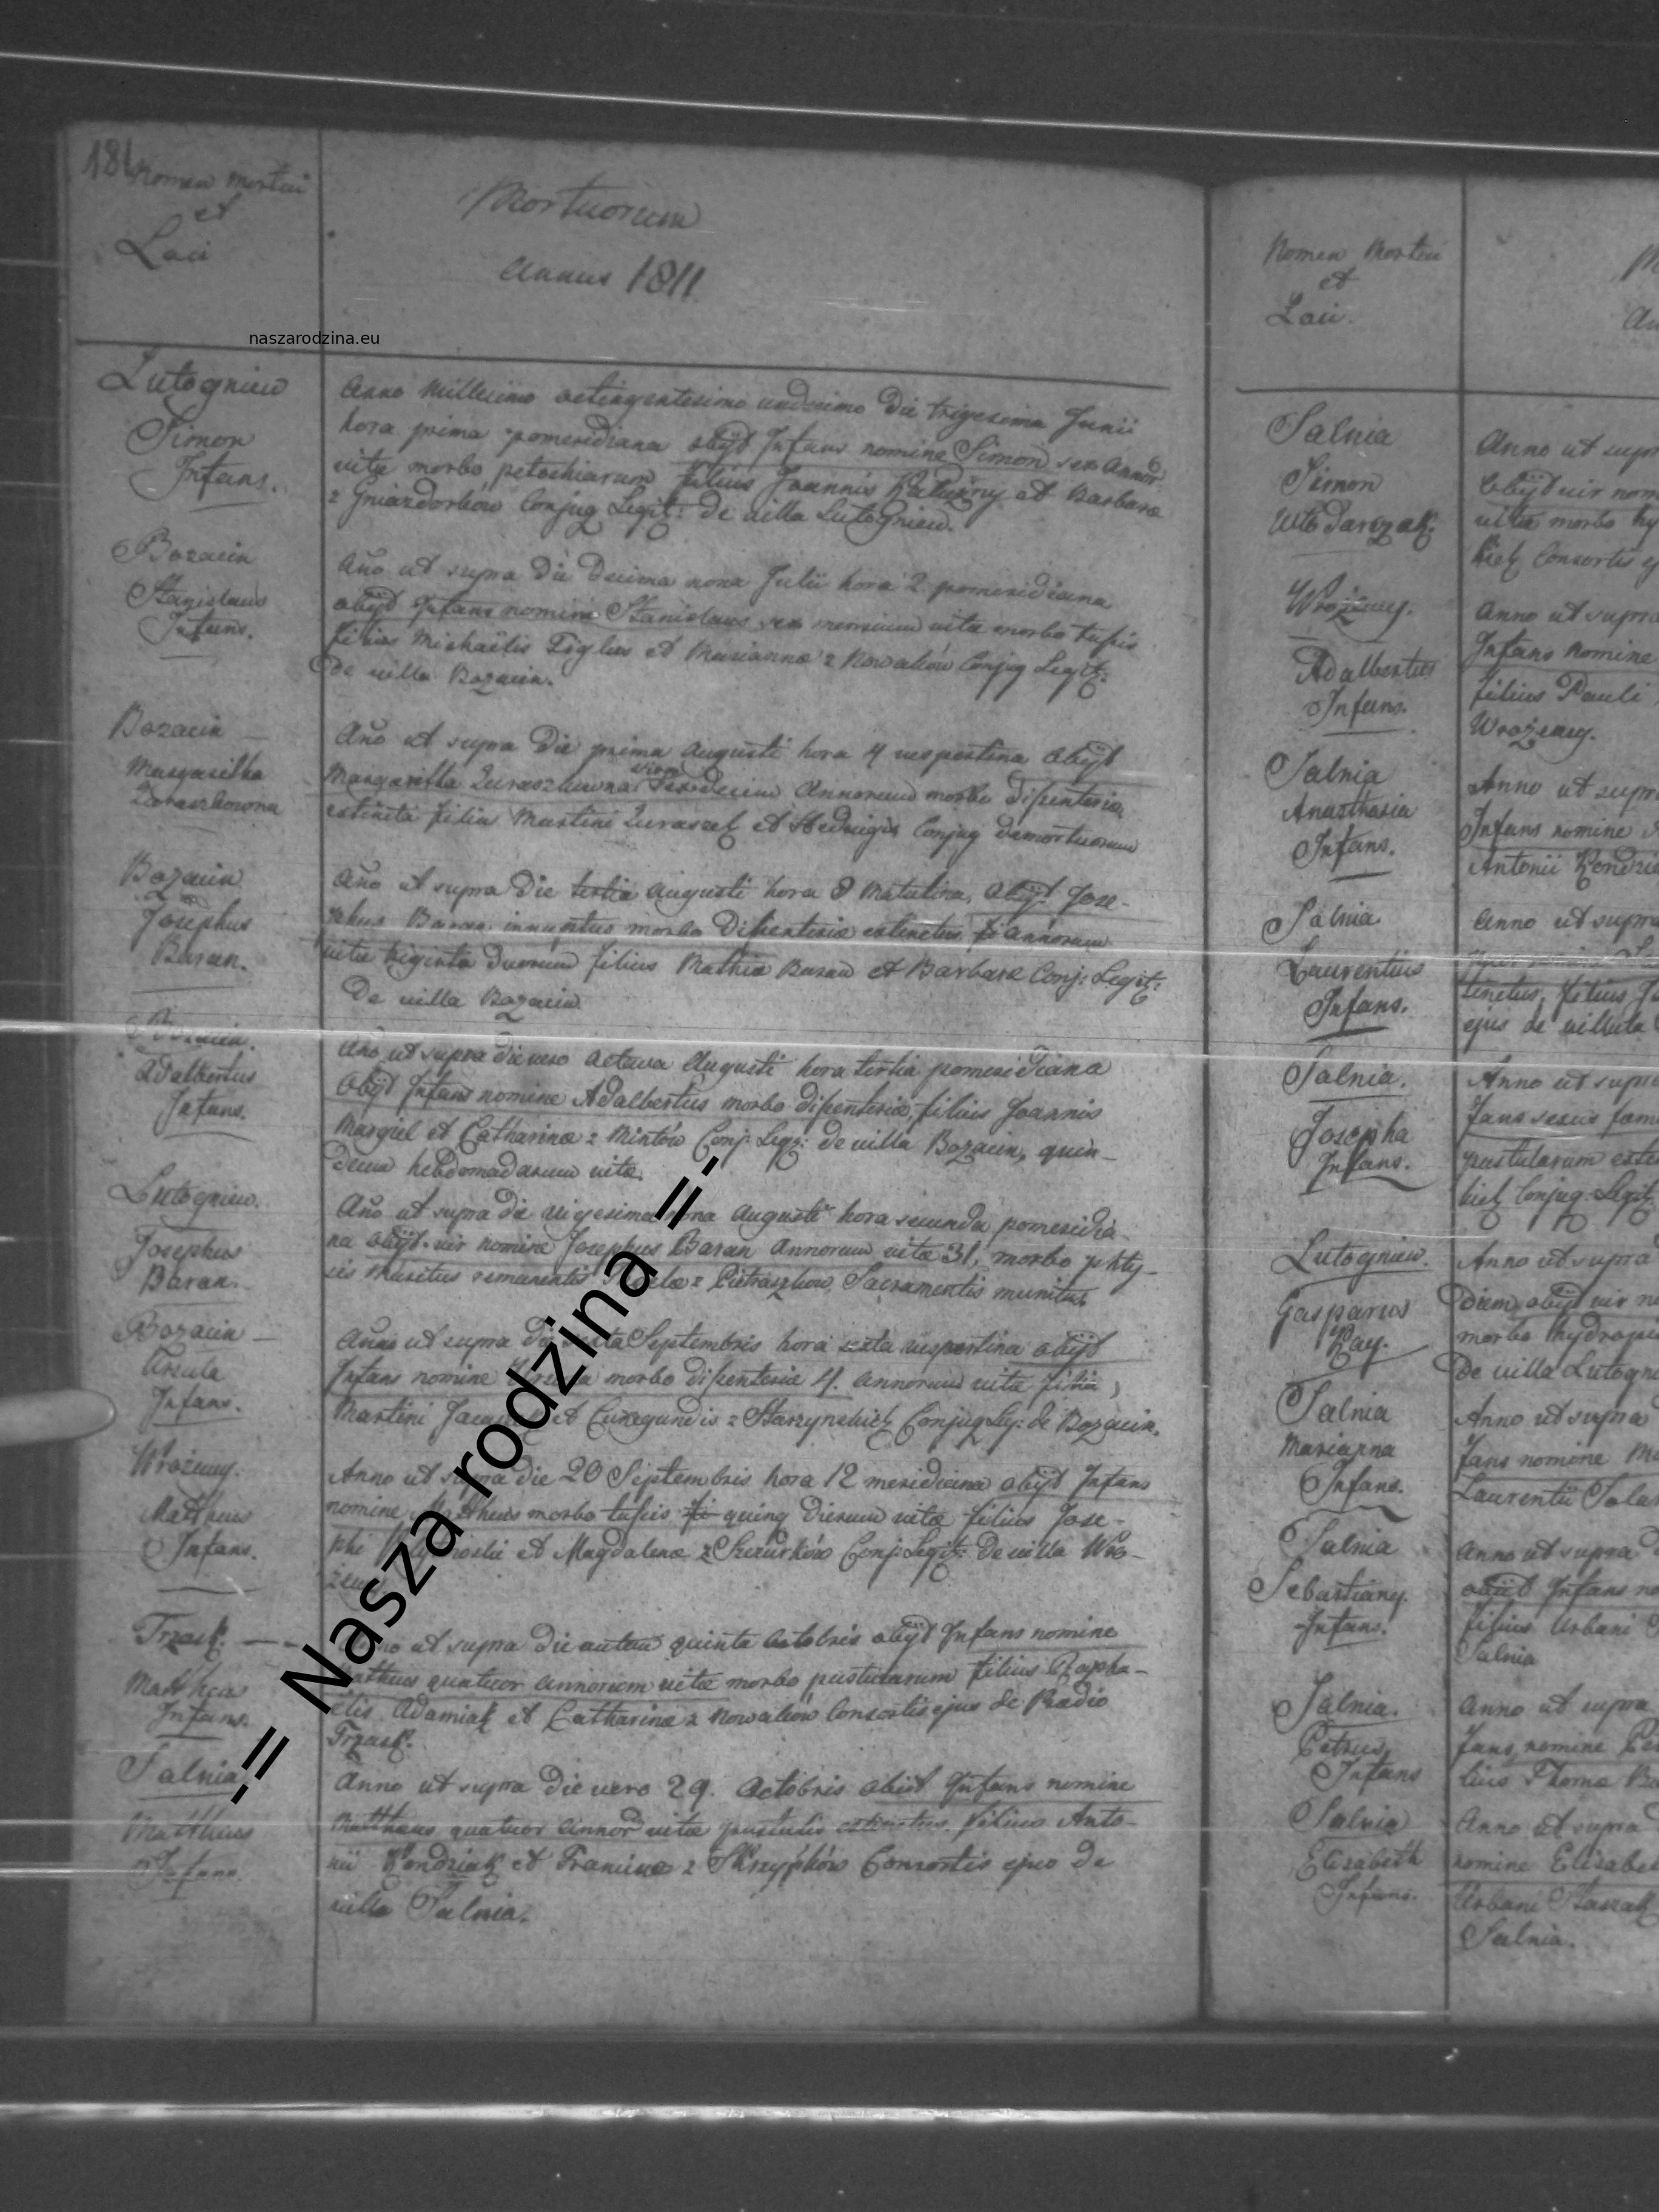 Nomen Mortui
et
Loci
Mortuorum
Annus 1811
naszarodzina.eu
Lutogniew
Simon
Infans.
Anno Millesimo octingentesimo undecimo Die trigesima Junii
hora prima pomeridiana obijt Infans nomine Simon sex Annor
vitæ morbo petochiarum filius Joannis Kałużny et Barbara
z Gniazdorków Conjug Legit: De villa Lutogniew.
Bozacin
Stanislaus
Infans.
Año ut supra Die Decima nona Julii hora 2 pomeridiana
obijt Infans nomine Stanislaus sex mensium vitæ morbo tussis
filius Michaëlis Figlus et Mariannæ z Nowaków Conjug Legit:
De villa Bozacin.
Bozacin
Margaritha
Año ut supra Die prima Augusti hora 4 vespertina obijt
Margaritha Annorum morbo disenteria
extincta filia Martini et Hedvigis Conjug demortuorum
Bozacin
Josephus
Baran.
Año ut supra Die tertia Augusti hora 8 Matutina, obijt Jose-
phus Baran morbo disenteria extinctus Annorum
vitæ triginta duorum filius Mathiæ Baran et Barbaræ Conj: Legit:
De villa Bozacin
Bozacin.
Adalbertus
Infans.
Año ut supra die vero octava Augusti hora tertia pomeridiana
Obijt Infans nomine Adalbertus morbo disenteria, filius Joannis
et Catharinæ z Mintów Conj: Leg: de villa Bozacin, quin-
decim hebdomadarum vitæ.
Lutogniew.
Josephus
Baran.
Año ut supra die vigesima nona Augusti hora secunda pomeridia-
na obijt vir nomine Josephus Baran Annorum vitæ 31, morbo phty-
sis Maritus remanentis z Pietraszków, Sacramentis munitus.
Bozacin
Ursula
Infans.
Anno ut supra Die Septembris hora sexta vespertina obijt
Infans nomine Ursula morbo disenteria 4. annorum vitæ filia
Martini et Cunegundis z Starzynskich Conjug Leg: de Bozacin.
Wrożewy.
Matheus
Infans.
Anno ut supra die 20 Septembris hora 12 meridiana obijt Infans
nomine Mattheus morbo tussis quinq dierum vitæ filius Jose-
phi et Magdalenæ z Szczurków Conj: Legit: De villa Wro-
żewy
Trzask.
Mattheus
Infans.
Anno ut supra die autem quinta Octobris obijt Infans nomine
Mathæus quatuor annorum vitæ morbo pustularum filius Rapha-
elis Adamiak et Catharinæ z Nowaków Consortis ejus de Radio
Trzask.
Salnia
Mattheus
Infans.
Anno ut supra Die vero 29. Octobris obiit Infans nomine
Matthæus quatuor Annor vitæ pustulis extinctus. filius Anto-
nii Kendziak et Franciscæ z Skrzypków Consortis ejus de
villa Salnia.
-= Nasza rodzina =-
Nomen Mortui
et
Loci.
Salnia
Simon
Włodarczak
Anno ut supr
Obijt vir nom
vitæ morbo hy
Consortis ej
Wrożewy.
Adalbertus
Infans.
Anno ut supra
Infans nomine
filius Pauli
Wrożewy.
Salnia
Anasthasia
Infans.
Anno ut supr
Infans nomine
Antonii Kendzia
Salnia
Laurentius
Infans.
Anno ut supr
tinctus, filius
ejus de villula
Salnia.
Josepha
Infans.
Anno ut supr
fans sexus fam
pustularum exti
Conjug: Legit
Lutogniew.
Gasparus
Ray.
Anno ut supra
diem obijt vir n
morbo hydropi
De villa Lutogni
Salnia
Marianna
Infans.
Anno ut supra
fans nomine Ma
Laurentii
Salnia
Sebastiany.
Infans.
Anno ut supra
obijt Infans no
filius Urbani
Salnia
Salnia.
Petrus
Infans
Anno ut supra
fans, nomine Pe
lius Thomæ
Salnia
Elisabeth
Infans.
Anno ut supra
nomine Elisabe
Urbani Staszak
Salnia.